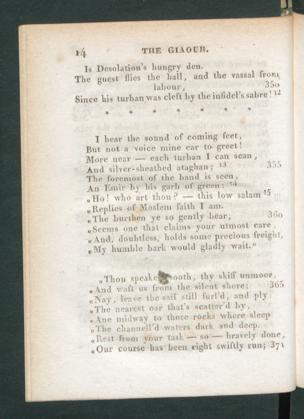 14
THE GIAOUR.
Is Desolation's hungry den.
The guest flies the hall, and the vassal from
labour, 350
Since his turban was cleft by the infidel's sabre! 12
* * * * * * *
I hear the sound of coming feet,
But not a voice mine ear to greet!
More near — each turban I can scan,
And silver-sheathed ataghan; 13 355
The foremost of the band is seen,
An Emir by his garb of green: 14
„Ho! who art thou? — this low salam 15
„Replies of Moslem faith I am.
„The burthen ye so gently bear, 360
„Seems one that claims your utmost care,
„And, doubtless, holds some precious freight,
„My humble bark would gladly wait."
„Thou speakest sooth, thy skiff unmoor,
„And waft us from the silent shore; 365
„Nay, leave the sail still furl'd, and ply
„The nearest oar that's scatter'd by,
„And midway to those rocks where sleep
„The channell'd waters dark and deep.
„Rest from your task — so — bravely done,
„Our course has been right swiftly run; 371